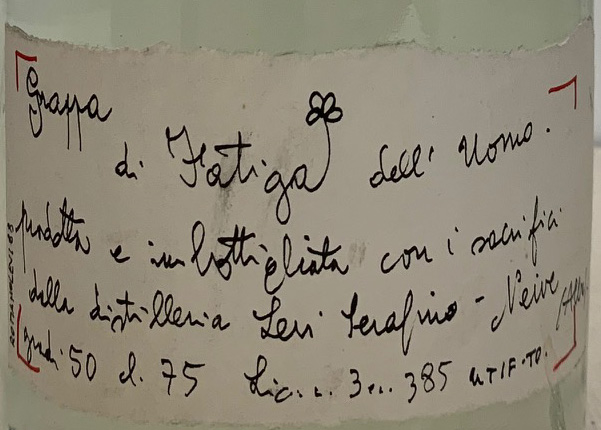 Grappa
di Fatiga dell' Uomo.
prodotta e imbottigliata con i sacrifici
della distilleria Levi Serafino - Neive
gradi 50 cl. 75 Lic. 385 UTIF-TO.